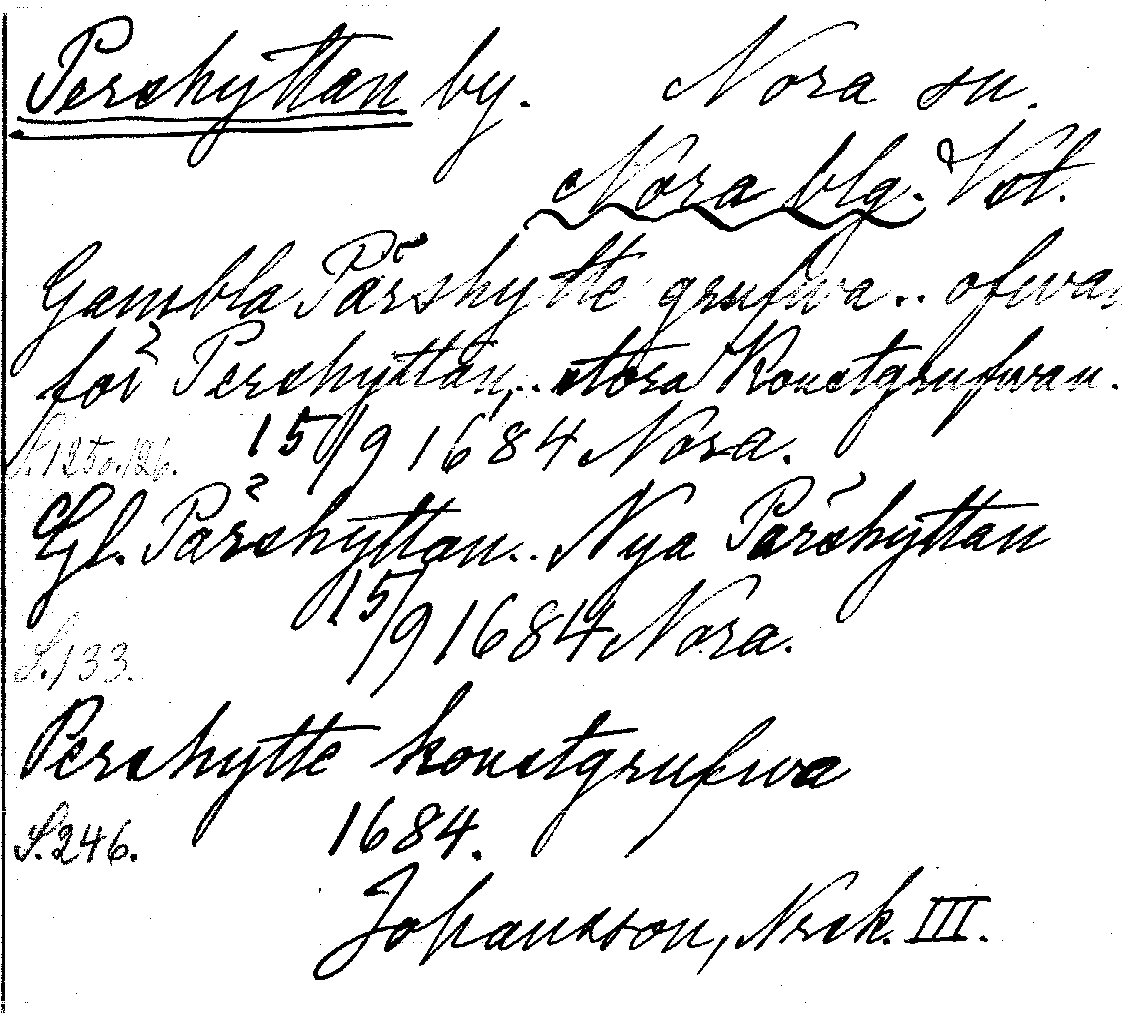 Pershyttan by. Nora sn.
Nora blg. Vstm.
Gambla Pärshytte grufwa.. ofwan
för Pershyttan,.. stora Konstgrufwan.
S. 125 o. 126. 15/9 1684 Nora.
Gl. Pärshyttan.. Nya Pärshyttan
15/9 1684 Nora.
S. 133.
Pershytte konstgrufwa
S. 246. 1684.
Johansson, Nrsk. III.